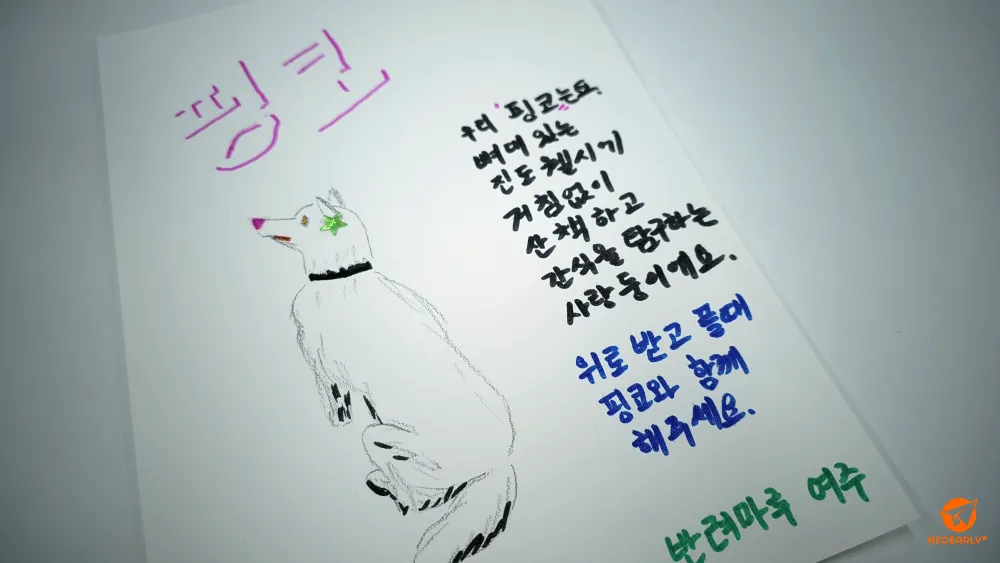 핑코
우리 핑코는요,
뼈대 있는
진도 첼시기
거침없이
산책하고
간식을 탐구하는
사랑둥이에요.
위로 받고 플때
핑코와 함께
해주세요.
반려마루 여주
NEOEARLY*